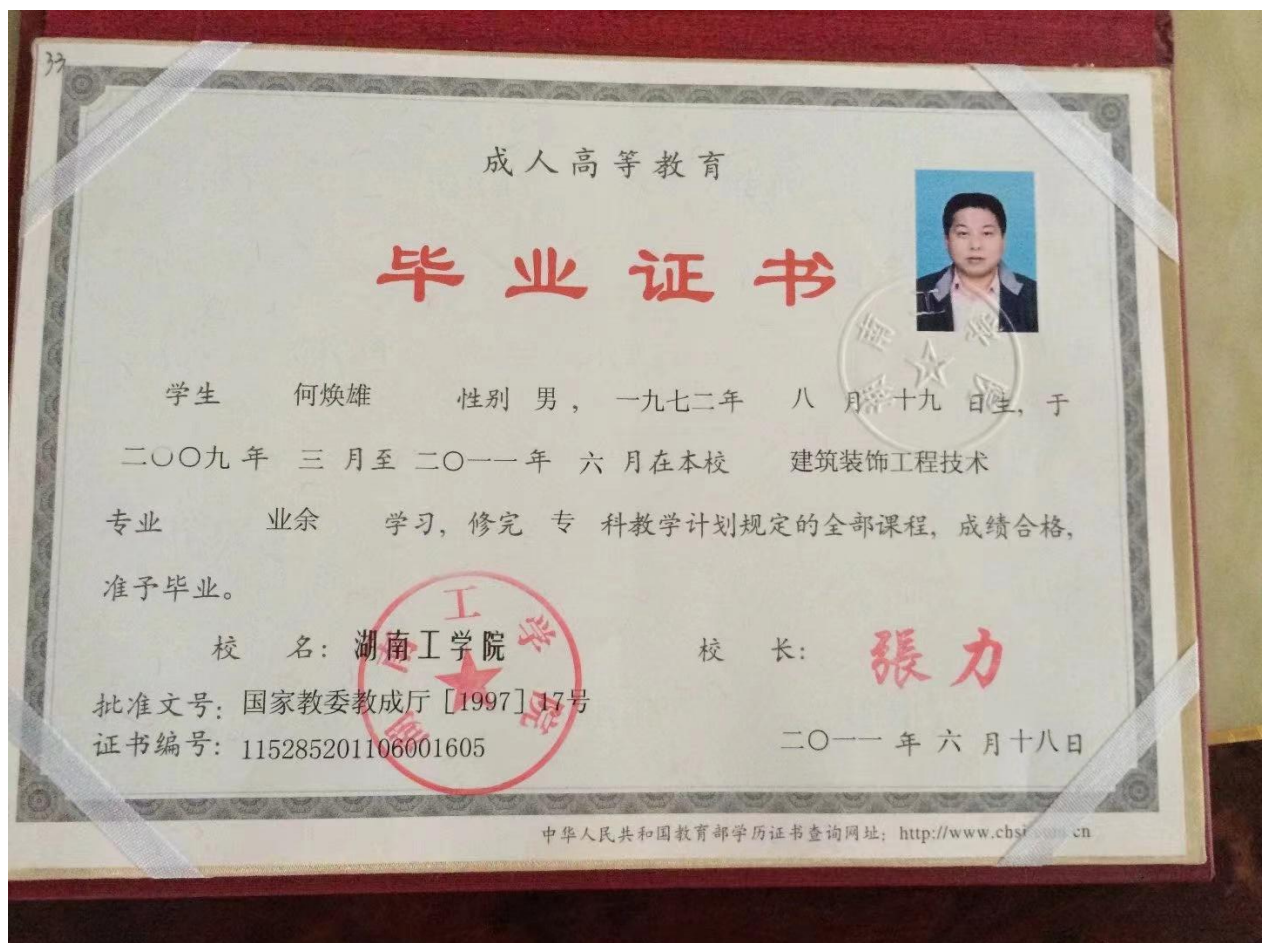 33
成人高等教育
毕业证书
学生 何焕雄 性别 男，一九七二年 八 月 十九 日生，于
二〇〇九年 三 月至 二〇一一年 六 月在本校 建筑装饰工程技术
专业 业余 学习，修完 专 科教学计划规定的全部课程，成绩合格，
准予毕业。
校 名：湖南工学院 校 长：張力
批准文号：国家教委教成厅［1997］17号
证书编号：115285201106001605 二〇一一年 六 月十八日
中华人民共和国教育部学历证书查询网址：http://www.chsi.com.cn
湖南工学院
湖南工学院